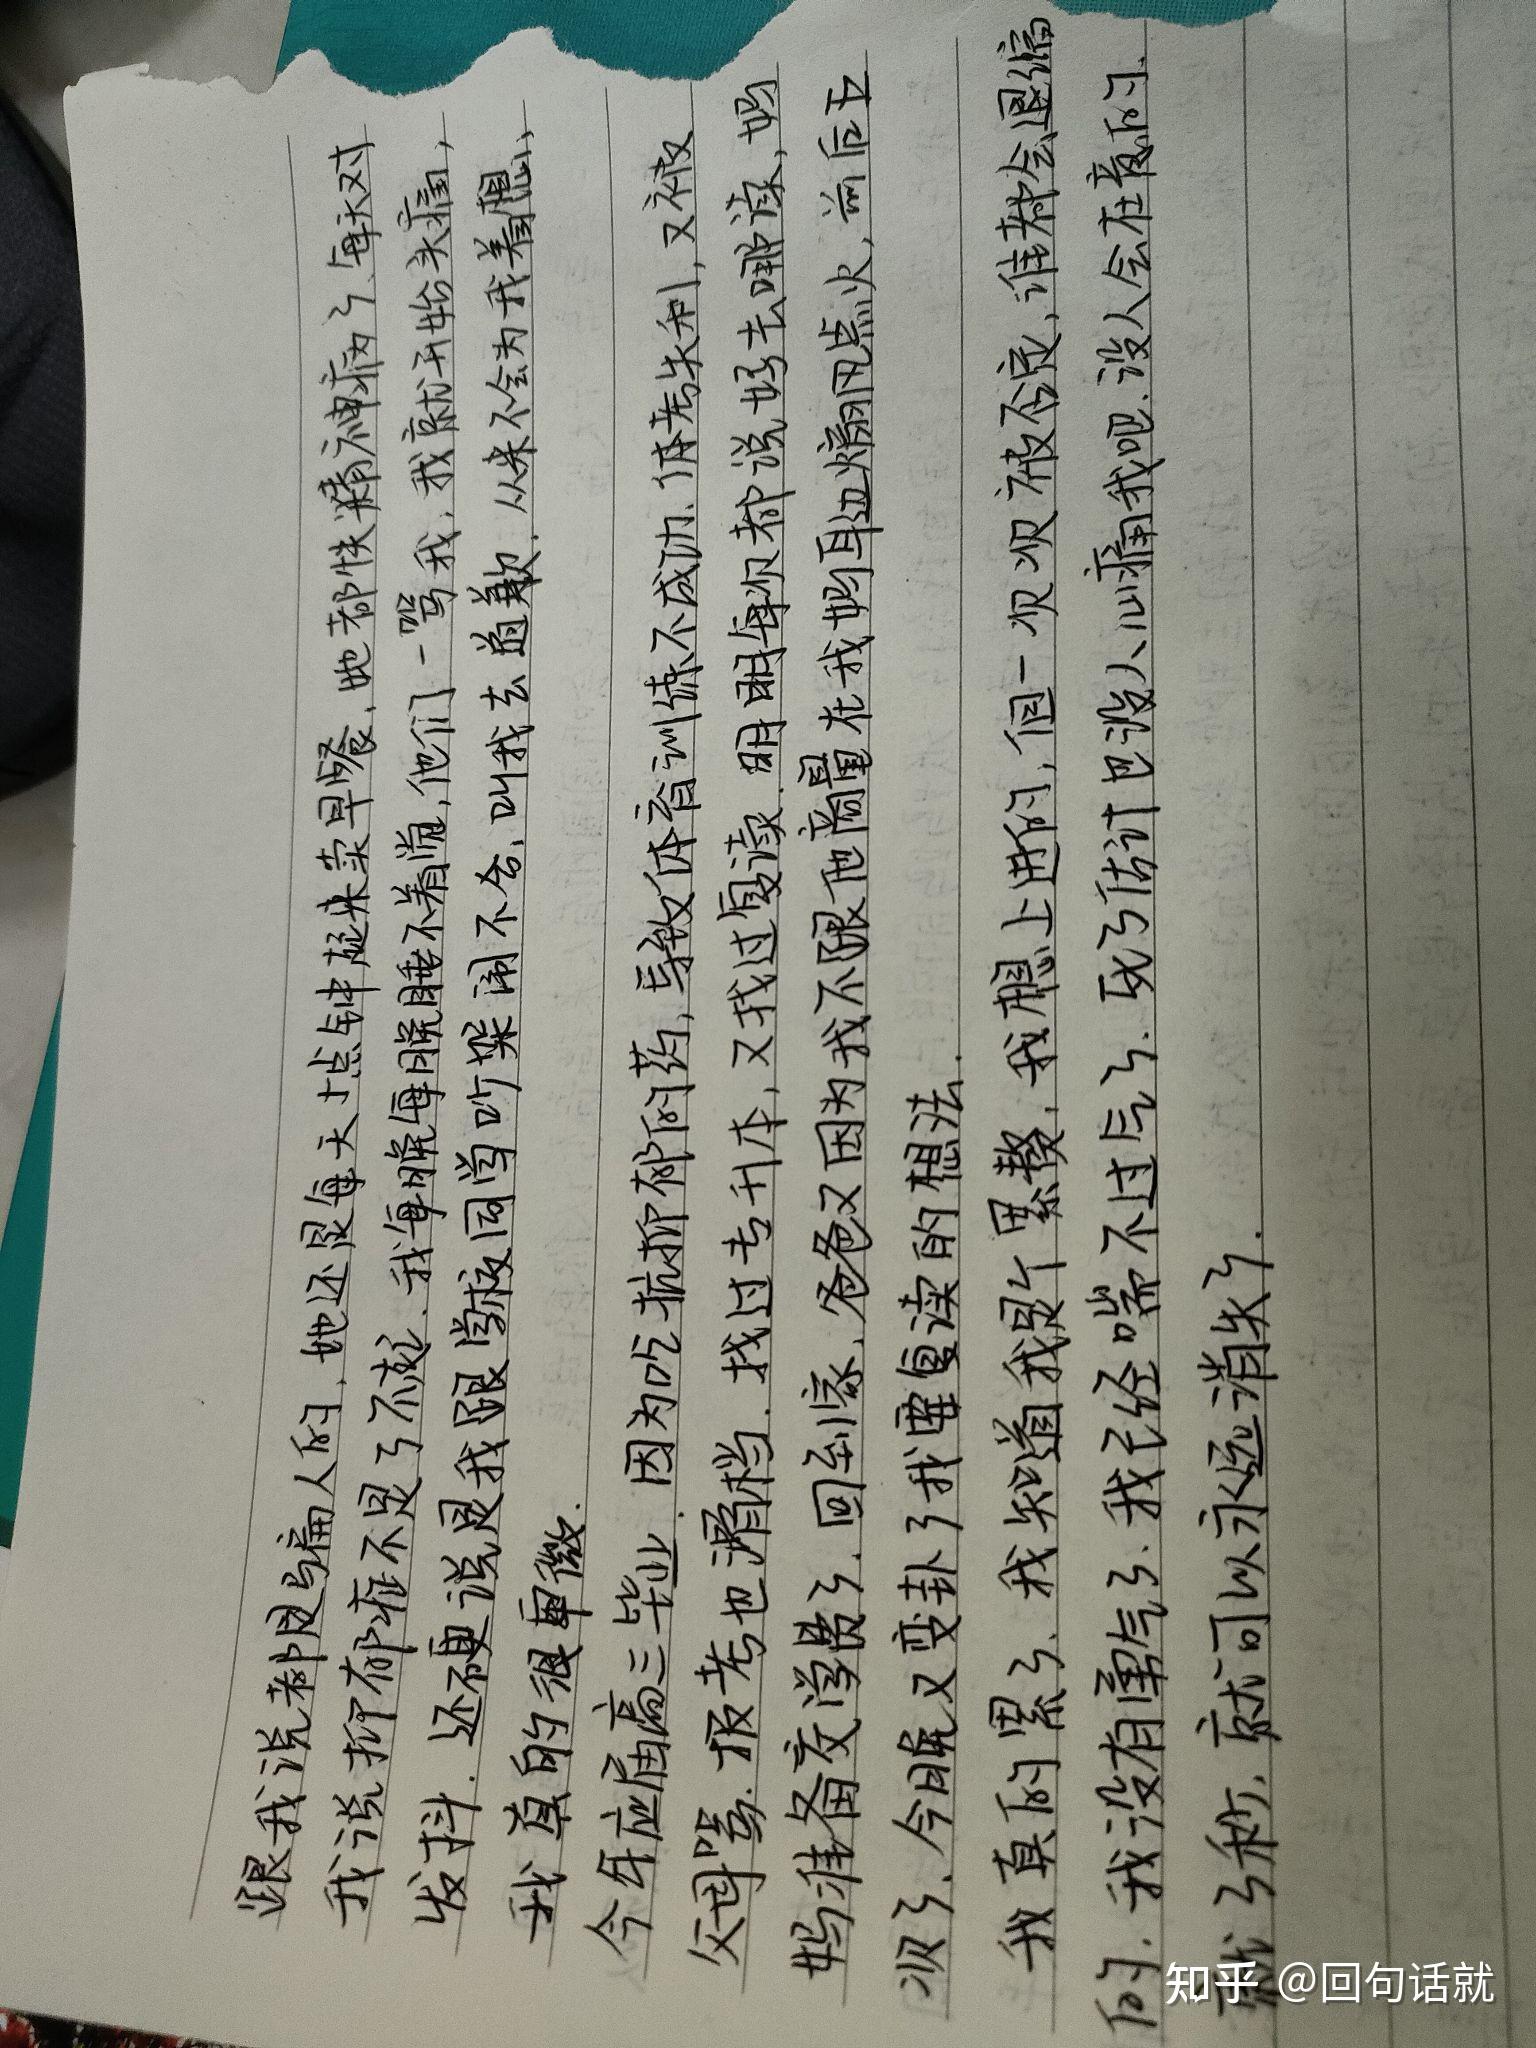 跟我说都是骗人的，她还是每天十点钟起来卖早餐，她都快精神病了，每天对
我说抑郁症不是了不起，我每晚每晚睡不着觉，他们一骂我，我就开始头痛，
发抖．还硬说是我跟学校同学吵架闹不舍，叫我去道歉，从来不会为我着想，
我真的很卑微．
今年应届高三毕业．因为吃抗抑郁的药，导致体育训练不成功，体考失利，又被
父母骂．报考也滑档．找过专升本，又找过复读．明明每次都说好去哪读，妈
妈准备交学费了．回到家，爸爸又因为我不跟他商量在我妈耳边煽风点火，前后五
次了，今晚又变卦了我要复读的想法．
我真的累了，我知道我是个累赘，我想上进的，但一次次被否定，谁都会退缩
的．我没有勇气了．我已经喘不过气了．死了估计也没人心痛我吧．没人会在意的．
就了秒，就可以永远消失了．
知乎 @回句话就